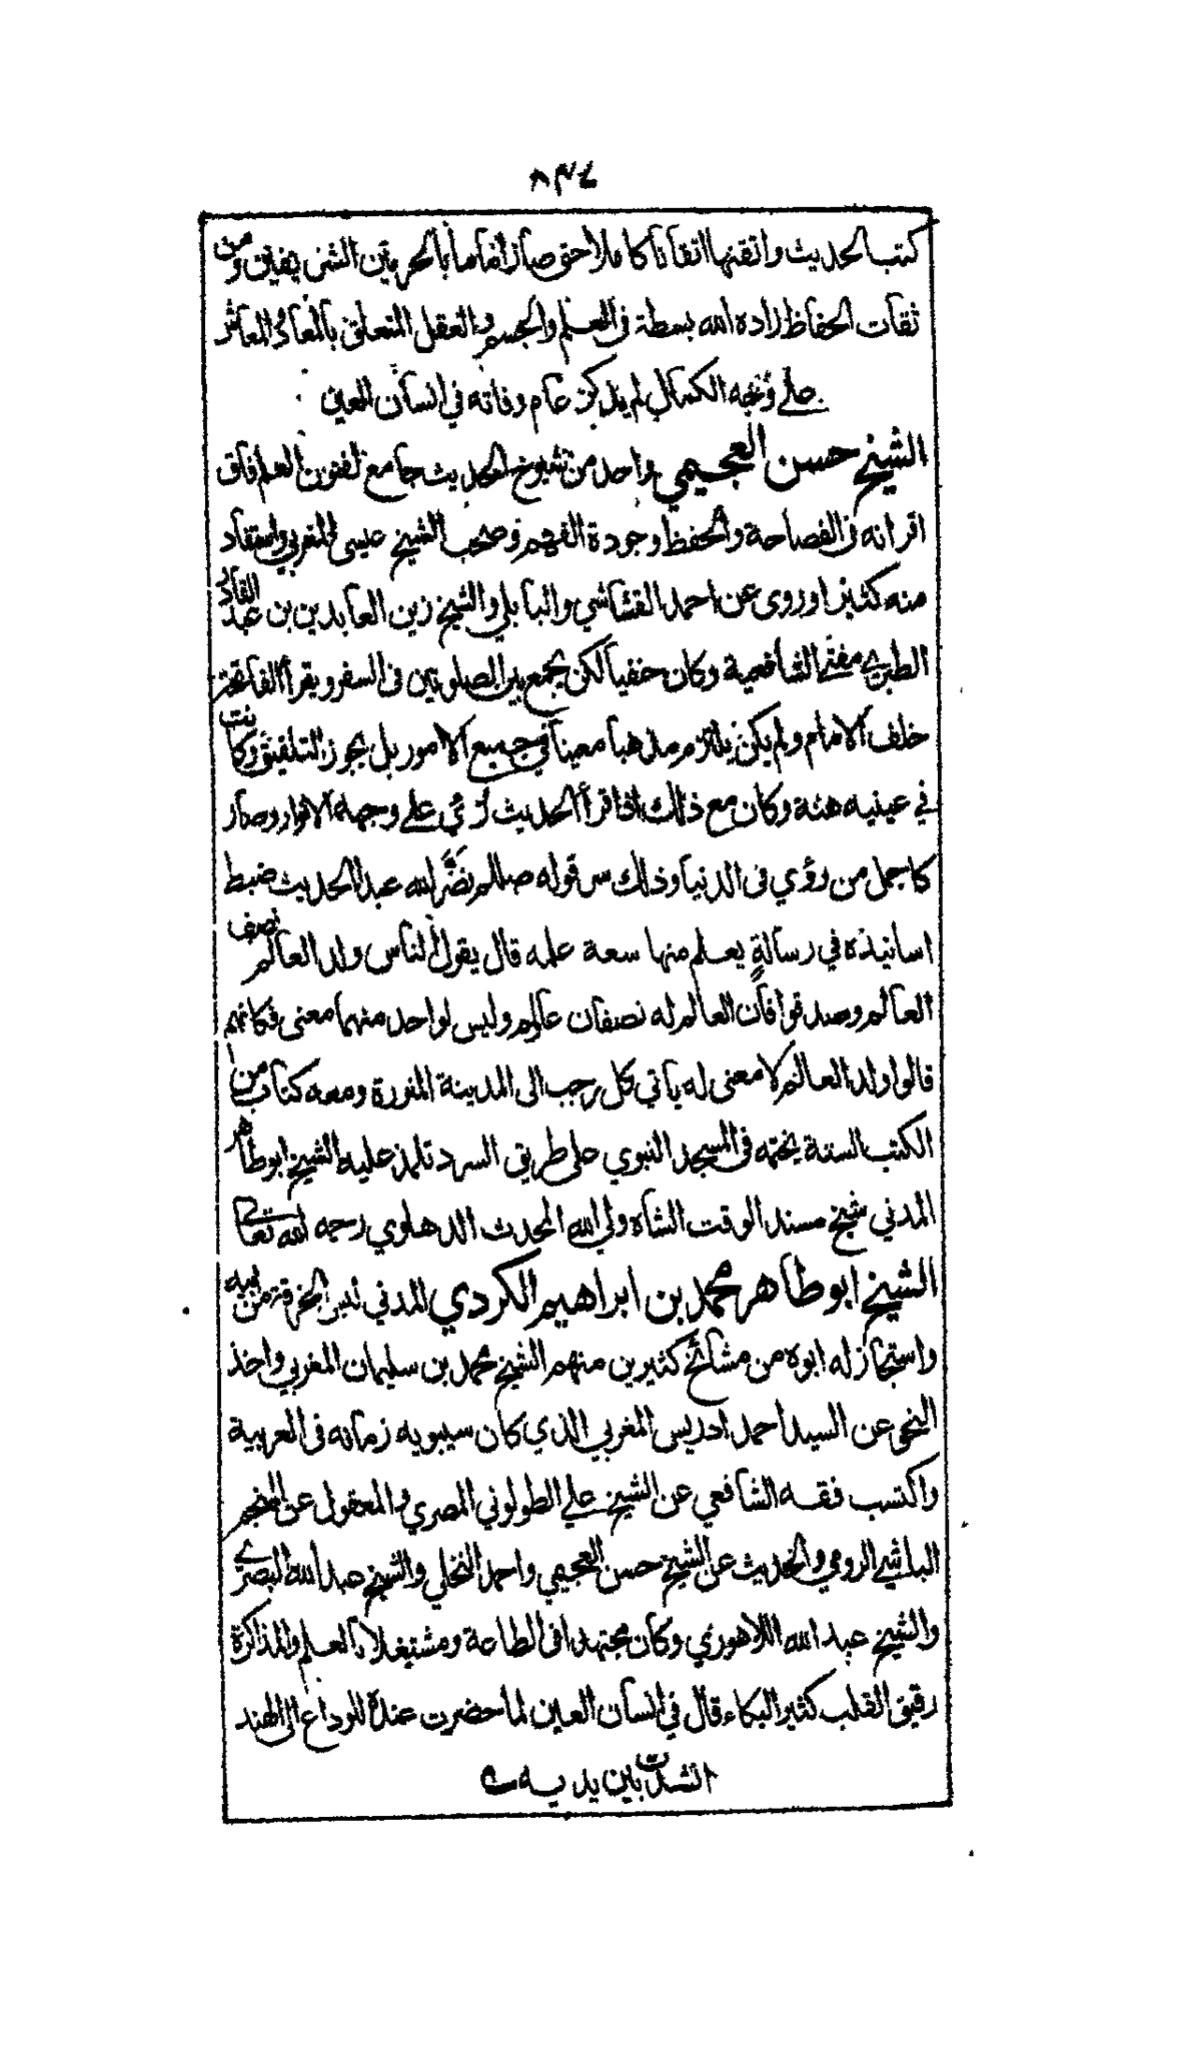 ٨٤٦
كتب الحديث واتقنها اتقانا كاملا حتى صار اماما بالحرمين الشريفين ومن
ثقات الحفاظ زاده الله بسطة فى العلم والجسم والعقل المتعلق بالمعاد والمعاش
على وجه الكمال لم يذكر عام وفاته في انسان العين
الشيخ حسن العجيمي واحد من شيوخ الحديث جامع لفنون العلم فاق
اقرانه فى الفصاحة والحفظ وجودة الفهم وصحب الشيخ عيسى المغربي واستفاد
منه كثيرا وروى عن احمد القشاشي والبابلي والشيخ زين العابدين بن عبد القادر
الطبري مفتي الشافعية وكان حنفيا لكن يجمع بين الصلوتين فى السفر ويقرأ الفاتحة
خلف الامام ولم يكن يلتزم مذهبا معينا في جميع الامور بل يجوز التلفيق وكانت
في عينيه هنة وكان مع ذلك اذا قرأ الحديث رئي على وجهه الانوار وصار
كاجمل من رؤي فى الدنيا وذلك سر قوله صلم نضّر الله عبدا الحديث ضبط
اسانيذه في رسالةٍ يعلم منها سعة علمه قال يقول الناس ولد العالم نصف
العالم وصدقوا فان العالم له نصفان عالم وليس لواحد منهما معنى فكانهم
قالوا ولد العالم لا معنى له يأتي كل رجب الى المدينة المنورة ومعه كتاب من
الكتب الستة يختمه فى المسجد النبوي على طريق السرد تلمذ عليه الشيخ ابو طاهر
المدني شيخ مسند الوقت الشاه ولي الله المحدث الدهلوي رحمه الله تعالى
الشيخ ابو طاهر محمد بن ابراهيم الكردي المدني لبس الخرقة من ابيه
واستجاز له ابوه من مشائخ كثيرين منهم الشيخ محمد بن سليمان المغربي واخذ
النحو عن السيد احمد ادريس المغربي الذي كان سيبويه زمانه فى العربية
واكتسب فقه الشافعي عن الشيخ علي الطولوني المصري والمعقول عن المنجم
الباشي الرومي والحديث عن الشيخ حسن العجيمي واحمد النخلي والشيخ عبد الله البصري
والشيخ عبد الله اللاهوري وكان مجتهدا فى الطاعة ومشتغلا بالعلم والمذاكرة
رقيق القلب كثير البكاء قال في انسان العين لما حضرت عنده للوداع الى الهند
انشدت بين يديه